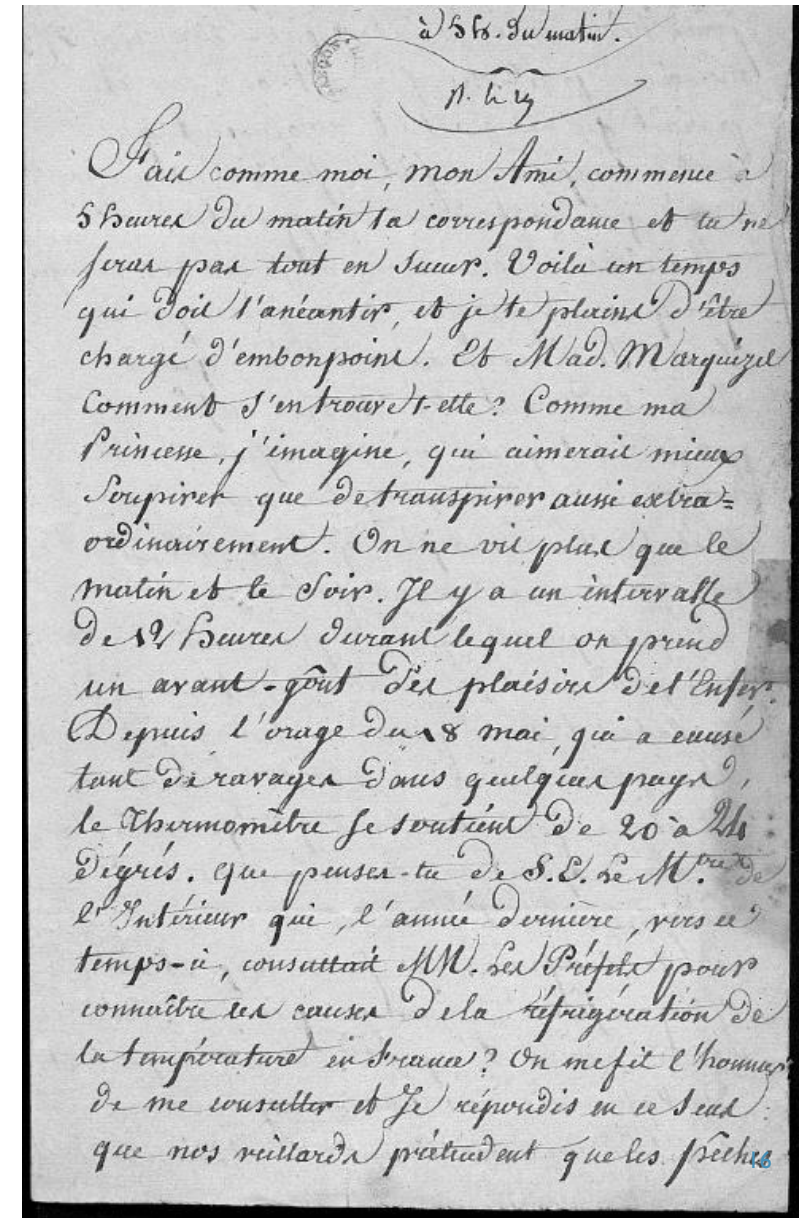 à 5 h. du matin.
Fais comme moi, mon Ami, commence à
5 heures du matin ta correspondance et tu ne
seras pas tout en sueur. Voilà un temps
qui doit t'anéantir, et je te plains d'être
chargé d'embonpoint. Et Mad. Marquizel
Comment s'en trouve-t-elle? Comme ma
Princesse, j'imagine, qui aimerait mieux
Soupirer que de transpirer aussi extra=
ordinairement. On ne vit plus que le
matin et le Soir. Il y a un intervalle
De 12 heures durant lequel on prend
un avant-goût des plaisirs de l'Enfer.
Depuis l'orage du 18 mai, qui a causé
tant de ravages dans quelques pays,
le Thermomètre se soutient de 20 à 24
Dégrés. Que penses-tu de S.E. Le M.tre de
l'Intérieur qui, l'année dernière, vers ce
temps-ci, consultait MM. Les Préfets pour
connaître les causes de la réfrigération de
la température en France? On me fit l'honneur
de me consulter et Je répondis en ce Sens:
que nos vieillards prétendent que les pêches
16